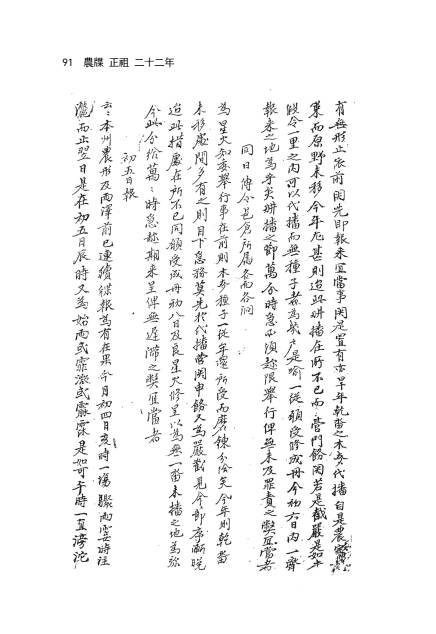 91 農牒 正祖 二十二年
有無形止依前因先卽報來宜當事関是置有亦旱年乾畓之木麥代播自是農家
東而原野未移今年尤甚則追此耕播在所不已而營門飭関若是截嚴是如乎
假令一里之內可以代播而無種子者爲幾戶是喩一從願受修成冊今初六日內一齊
報來之地爲乎矣耕播之節萬分時急不須趁限擧行俾無未及罪責之獘宜當者
同日傳令邑倉所屬各面各洞
爲星火知委擧行事在前則木麥種子一從年還所受而磨鍊分給矣今年則乾畓
未移處間多有之則目下急務莫先於代播營関申飭又爲嚴截見今節序漸晚
追此措處在所不已同願受成冊初八日及良星火修呈以爲無一畓未播之地爲於
今此分給萬萬時急趁期來呈俾無遲滯之獘宜當者
初五日報
云云本州農形及雨澤前已連續牒報爲有在果今月初四日亥時一場驟雨霎時注
灑而止翌日是在初五日辰時又爲始雨或霏微或霢霂是如可午時一直滂沱